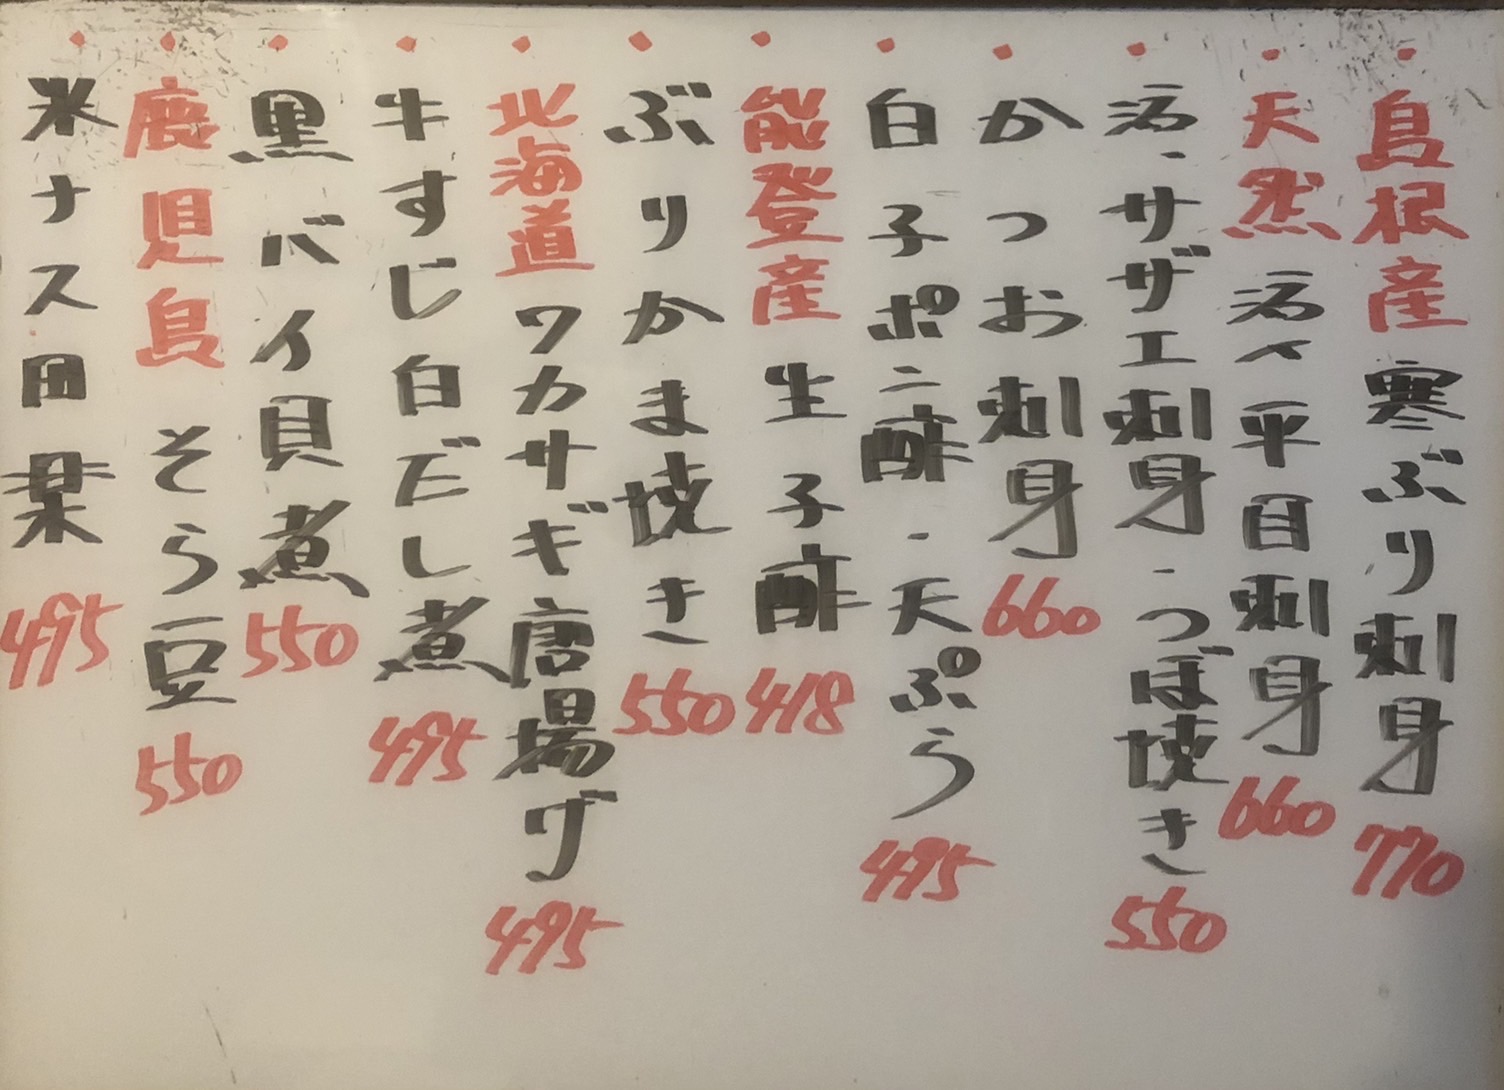 ・島根産 寒ぶり刺身 770
・天然 活〆平目刺身 660
・活・サザエ刺身・つぼ焼き 550
・かつお刺身 660
・白子ポン酢・天ぷら 495
・能登産 生子酢 418
・ぶりかま焼き 550
・北海道 ワカサギ唐揚げ 495
・牛すじ白だし煮 495
・黒バイ貝煮 550
・鹿児島 そら豆 550
・米ナス田楽 495